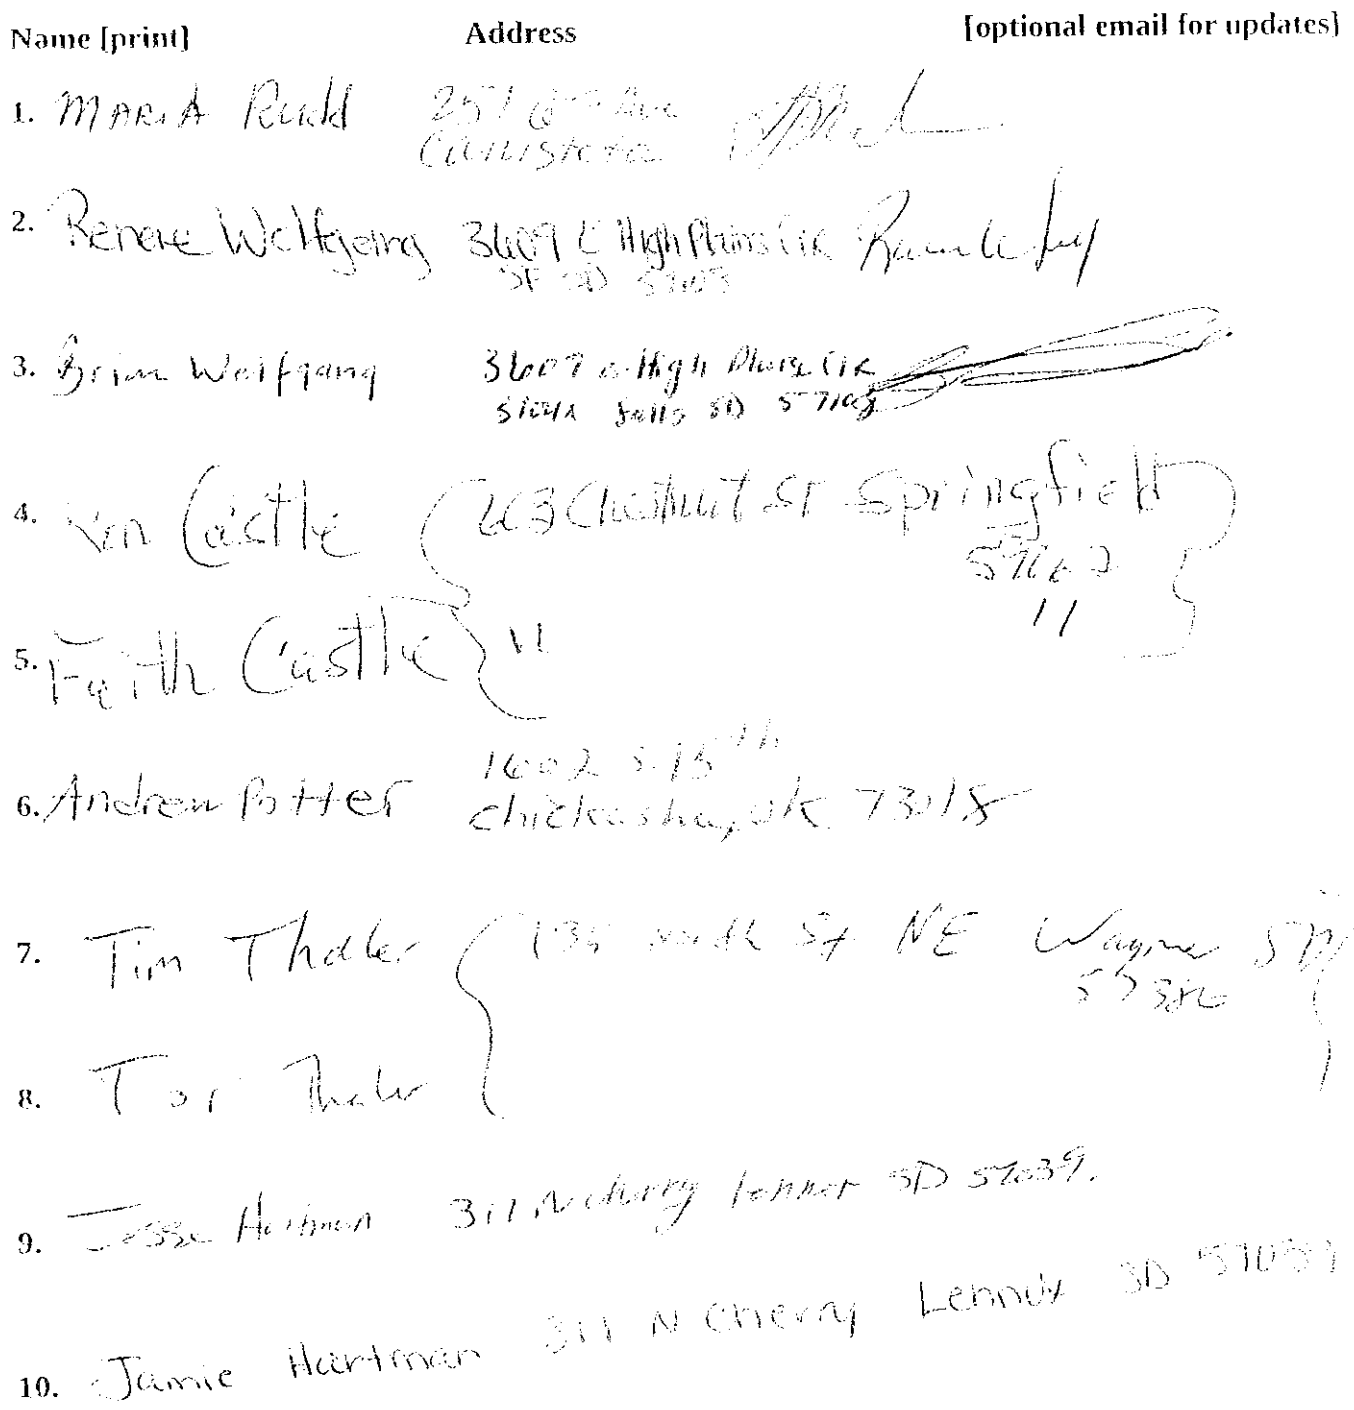 Name [print] Address [optional email for updates]
1. MARIA Rudd 251 6th Ave
Canistota
2. Renae Wolfgang 3609 E High Plains Cir
SF SD 57103
3. Brian Wolfgang 3609 E. High Plains Cir
Sioux Falls SD 57103
4. Castle 603 Chestnut St Springfield
57062
5. Faith Castle " "
6. Andrew Potter 1602 S. 15th
Chickasha, OK 73018
7. Tim Thaler 135 North St NE Wagner SD
57380
8. Tori Thaler
9. Jesse Hartman 311 N Cherry Lennox SD 57039.
10. Jamie Hartman 311 N Cherry Lennox SD 57039